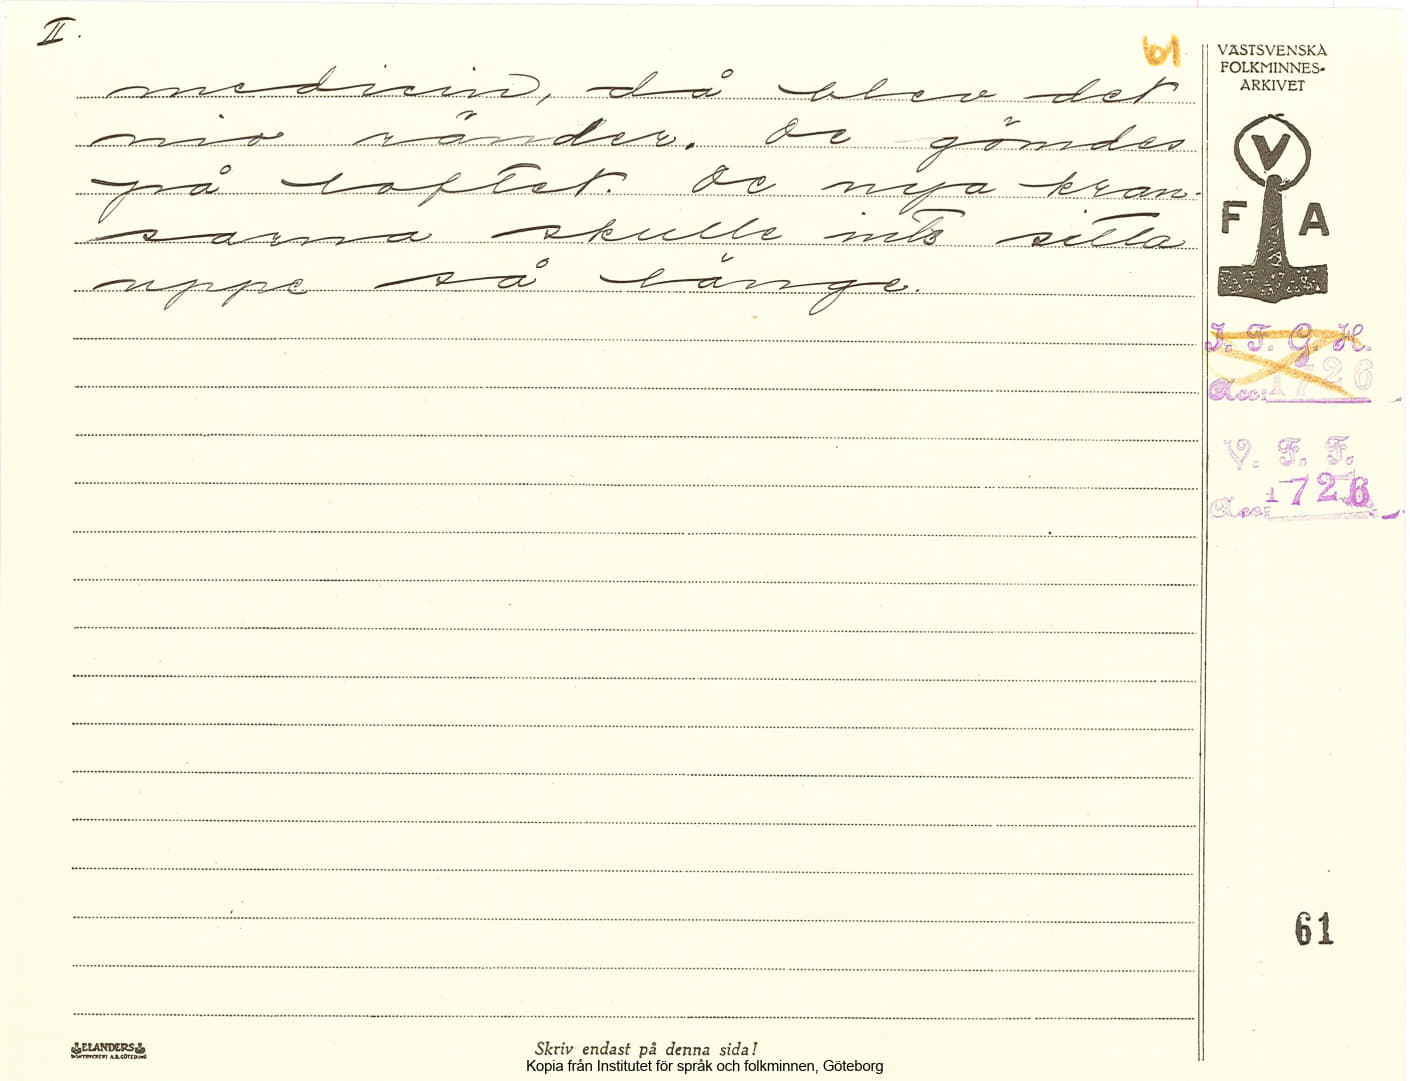 II.
61
medicin, då blev det
nio ränder. De gömdes
på loftet. De nya kran-
sarna skulle inte sitta
uppe så länge.
VÄSTSVENSKA
FOLKMINNES-
ARKIVET
V
F A
I. F. G. H.
Acc: 1726
V. F. F.
Acc: 1726
61
ELANDERS
Skriv endast på denna sida!
Kopia från Institutet för språk och folkminnen, Göteborg